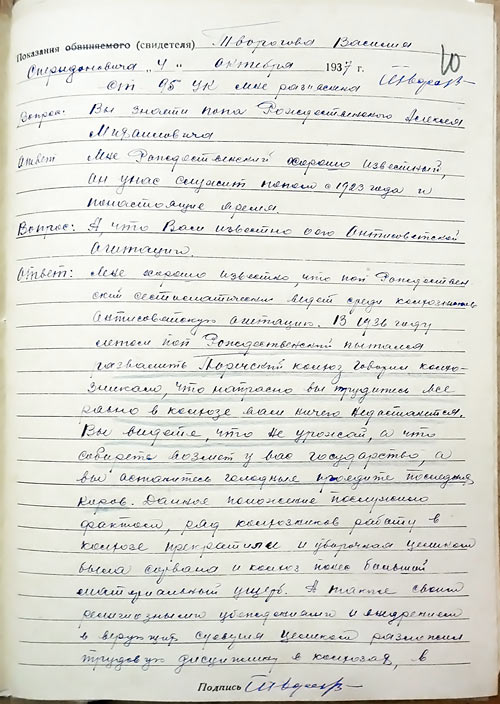 10
Показания обвиняемого (свидетеля) Творогова Василия
Спиридоновича „4" октября 1937 г.
от 95 УК мне разяснена Творогов
Вопрос: Вы знаете попа Рождественского Алексея
Михайловича
Ответ Мне Рождественский хорошо известный,
он у нас служит попом с 1923 года и
понастоящие время.
Вопрос: А, что Вам известно о его Антисоветской
агитации.
Ответ: Мне хорошо известно, что поп Рождествен
ский систиматически ведет среди колхозников
Антисоветскую агитацию. В 1936 году
летом поп Рождественский пытался
развалить колхоз говорил колхо-
зникам, что напрасно вы трудитесь все
равно в колхозе вам ничего недостанится.
Вы видете, что не урожай, а что
соберете возмет у вас государство, а
вы останитесь голодные проедите последних
коров. Данное положение послужило
фактом, ряд колхозников работу в
колхозе прекратили и уборочная целиком
была сорвана и колхоз понес большой
материальный ущерб. А также своими
религиозными убеждениями и внедрением
в верующих суеверия целиком разложил
трудовую дисциплину в колхозах, в
Подпись Творогов